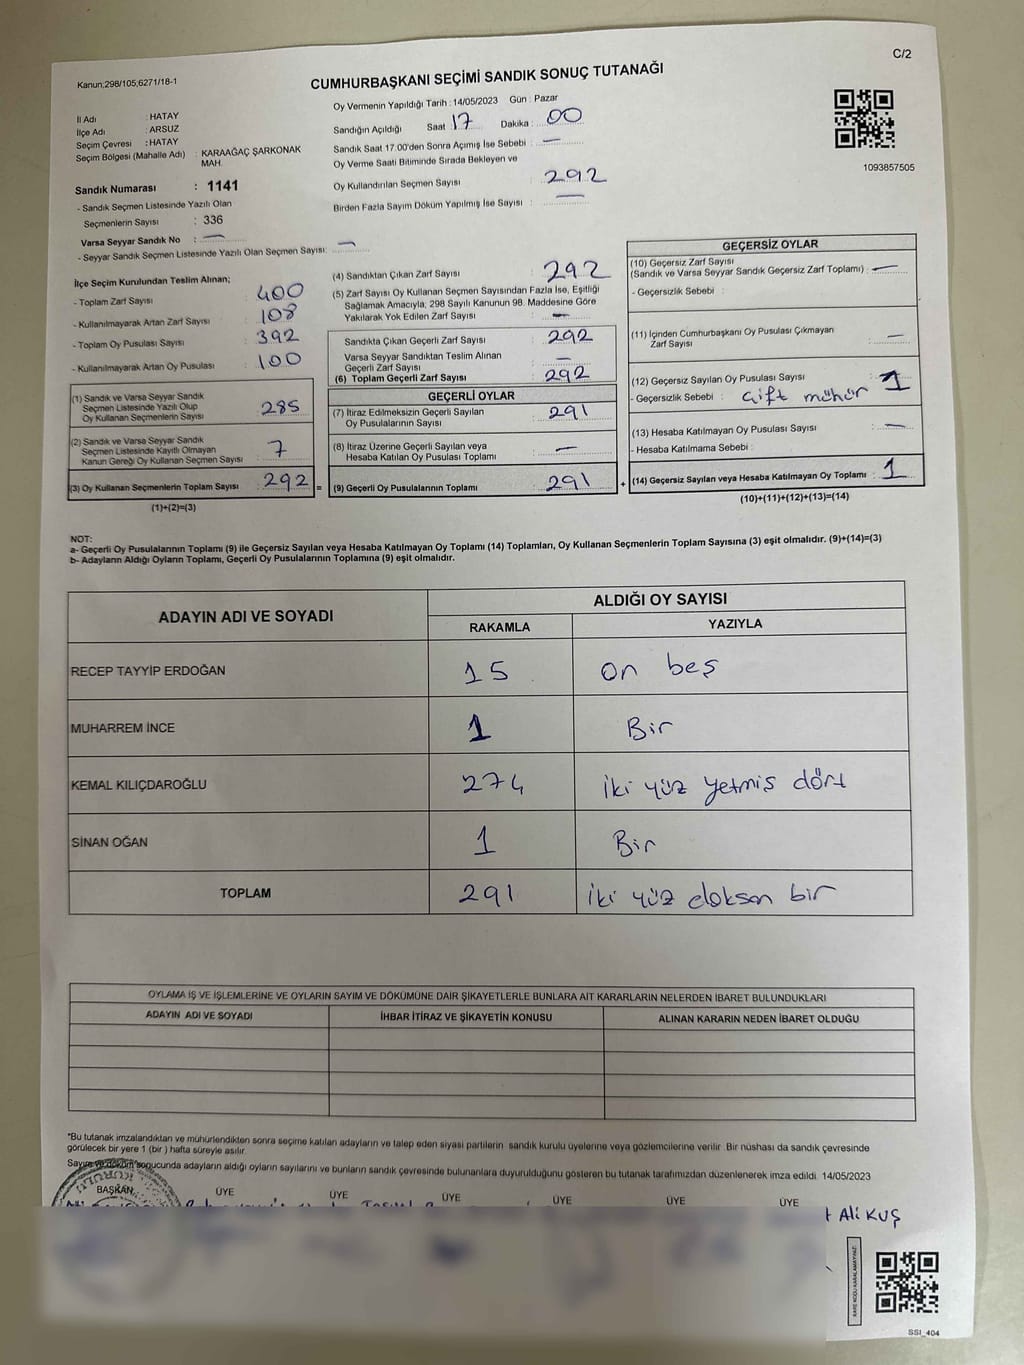 C/2
Kanun;298/105;6271/18-1
CUMHURBAŞKANI SEÇİMİ SANDIK SONUÇ TUTANAĞI
İl Adı : HATAY
İlçe Adı : ARSUZ
Seçim Çevresi : HATAY
Seçim Bölgesi (Mahalle Adı) : KARAAĞAÇ ŞARKONAK
MAH.
Sandık Numarası : 1141
- Sandık Seçmen Listesinde Yazılı Olan
Seçmenlerin Sayısı : 336
Varsa Seyyar Sandık No : —
- Seyyar Sandık Seçmen Listesinde Yazılı Olan Seçmen Sayısı: —
Oy Vermenin Yapıldığı Tarih : 14/05/2023 Gün : Pazar
Sandığın Açıldığı Saat : 17 Dakika : 00
Sandık Saat 17.00'den Sonra Açımış İse Sebebi : —
Oy Verme Saati Bitiminde Sırada Bekleyen ve
Oy Kullandırılan Seçmen Sayısı : 292
Birden Fazla Sayım Döküm Yapılmış İse Sayısı : —
1093857505
İlçe Seçim Kurulundan Teslim Alınan;
- Toplam Zarf Sayısı : 400
- Kullanılmayarak Artan Zarf Sayısı : 108
- Toplam Oy Pusulası Sayısı : 392
- Kullanılmayarak Artan Oy Pusulası : 100
(1) Sandık ve Varsa Seyyar Sandık
Seçmen Listesinde Yazılı Olup
Oy Kullanan Seçmenlerin Sayısı : 285
(2) Sandık ve Varsa Seyyar Sandık
Seçmen Listesinde Kayıtlı Olmayan
Kanun Gereği Oy Kullanan Seçmen Sayısı : 7
(3) Oy Kullanan Seçmenlerin Toplam Sayısı : 292 =
(1)+(2)=(3)
(4) Sandıktan Çıkan Zarf Sayısı : 292
(5) Zarf Sayısı Oy Kullanan Seçmen Sayısından Fazla İse, Eşitliği
Sağlamak Amacıyla, 298 Sayılı Kanunun 98. Maddesine Göre
Yakılarak Yok Edilen Zarf Sayısı : —
Sandıkta Çıkan Geçerli Zarf Sayısı : 292
Varsa Seyyar Sandıktan Teslim Alınan
Geçerli Zarf Sayısı : —
(6) Toplam Geçerli Zarf Sayısı : 292
GEÇERLİ OYLAR
(7) İtiraz Edilmeksizin Geçerli Sayılan
Oy Pusulalarının Sayısı : 291
(8) İtiraz Üzerine Geçerli Sayılan veya
Hesaba Katılan Oy Pusulası Toplamı : —
(9) Geçerli Oy Pusulalarının Toplamı : 291 +
GEÇERSİZ OYLAR
(10) Geçersiz Zarf Sayısı
(Sandık ve Varsa Seyyar Sandık Geçersiz Zarf Toplamı) : —
- Geçersizlik Sebebi :
(11) İçinden Cumhurbaşkanı Oy Pusulası Çıkmayan
Zarf Sayısı : —
(12) Geçersiz Sayılan Oy Pusulası Sayısı : 1
- Geçersizlik Sebebi : Çift mühür
(13) Hesaba Katılmayan Oy Pusulası Sayısı : —
- Hesaba Katılmama Sebebi :
(14) Geçersiz Sayılan veya Hesaba Katılmayan Oy Toplamı : 1
(10)+(11)+(12)+(13)=(14)
NOT:
a- Geçerli Oy Pusulalarının Toplamı (9) ile Geçersiz Sayılan veya Hesaba Katılmayan Oy Toplamı (14) Toplamları, Oy Kullanan Seçmenlerin Toplam Sayısına (3) eşit olmalıdır. (9)+(14)=(3)
b- Adayların Aldığı Oyların Toplamı, Geçerli Oy Pusulalarının Toplamına (9) eşit olmalıdır.
ADAYIN ADI VE SOYADI ALDIĞI OY SAYISI
RAKAMLA YAZIYLA
RECEP TAYYİP ERDOĞAN 15 on beş
MUHARREM İNCE 1 Bir
KEMAL KILIÇDAROĞLU 274 iki yüz yetmiş dört
SİNAN OĞAN 1 Bir
TOPLAM 291 iki yüz doksan bir
OYLAMA İŞ VE İŞLEMLERİNE VE OYLARIN SAYIM VE DÖKÜMÜNE DAİR ŞİKAYETLERLE BUNLARA AİT KARARLARIN NELERDEN İBARET BULUNDUKLARI
ADAYIN ADI VE SOYADI İHBAR İTİRAZ VE ŞİKAYETİN KONUSU ALINAN KARARIN NEDEN İBARET OLDUĞU
*Bu tutanak imzalandıktan ve mühürlendikten sonra seçime katılan adayların ve talep eden siyasi partilerin sandık kurulu üyelerine veya gözlemcilerine verilir. Bir nüshası da sandık çevresinde
görülecek bir yere 1 (bir ) hafta süreyle asılır.
Sayım ve döküm sonucunda adayların aldığı oyların sayılarını ve bunların sandık çevresinde bulunanlara duyurulduğunu gösteren bu tutanak tarafımızdan düzenlenerek imza edildi. 14/05/2023
BAŞKAN ÜYE ÜYE ÜYE ÜYE ÜYE ÜYE
Ali KUŞ
SSI_404